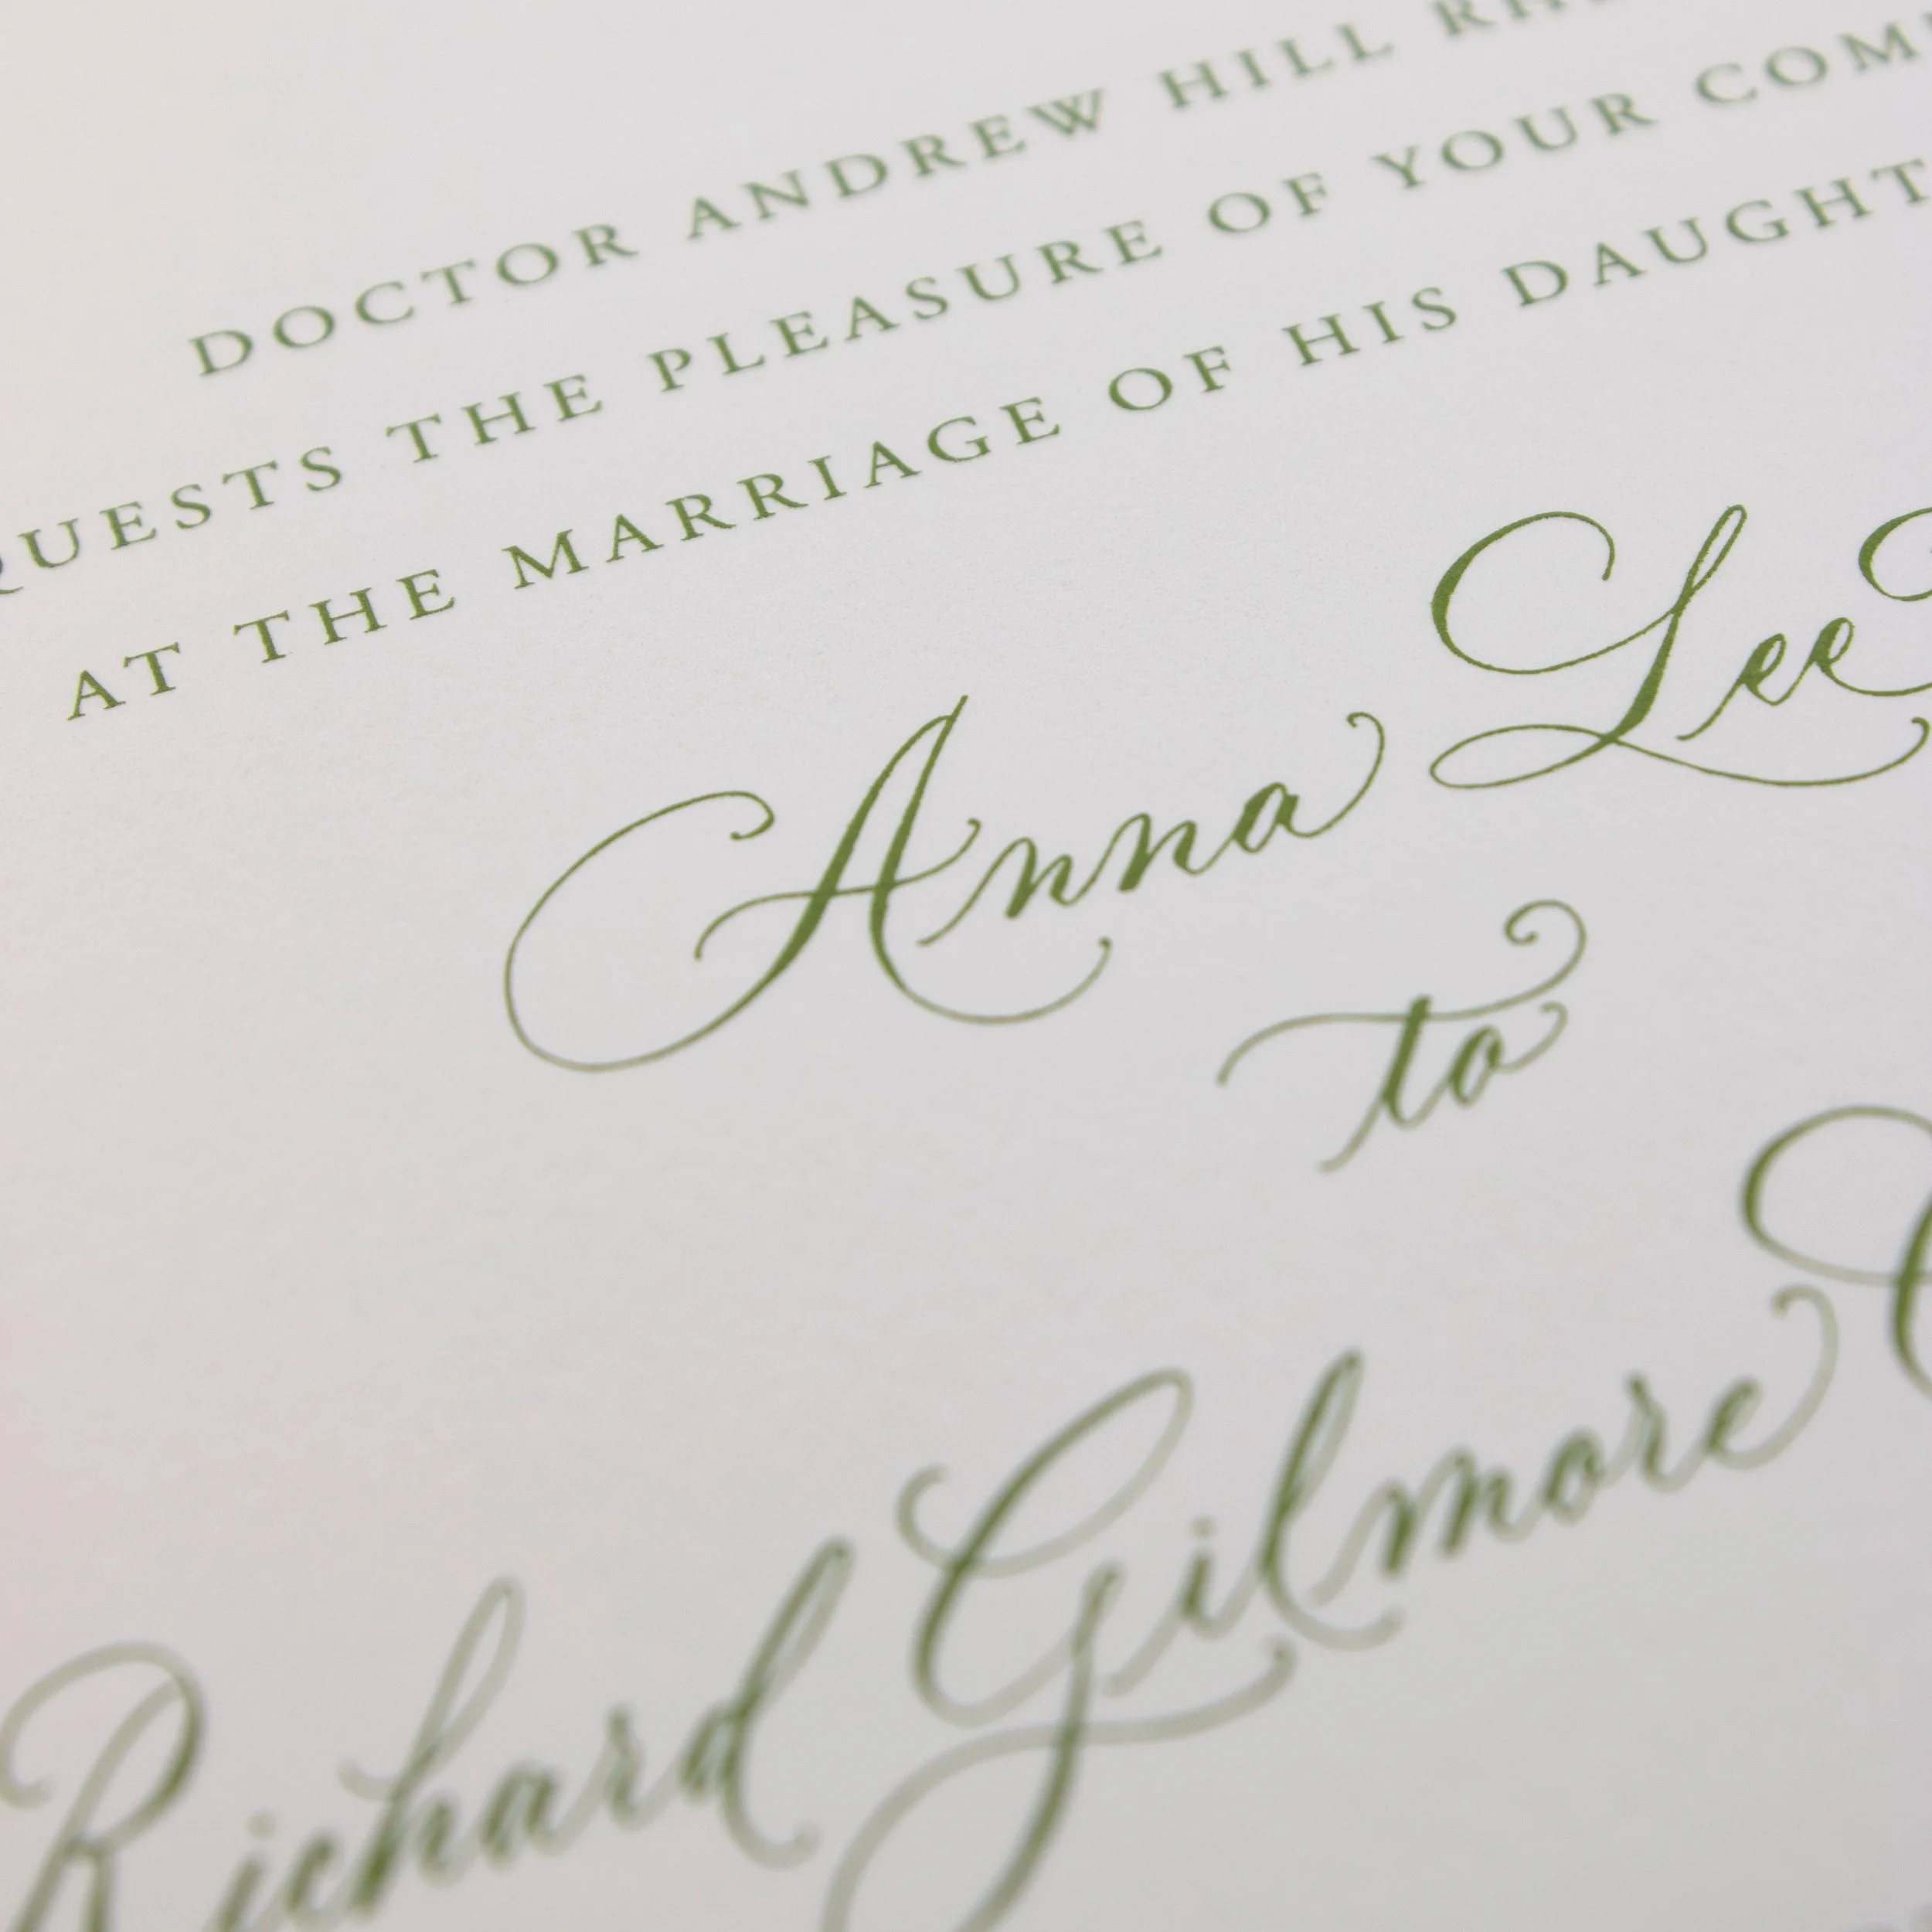 DOCTOR ANDREW HILL
QUESTS THE PLEASURE OF YOUR COM
AT THE MARRIAGE OF HIS DAUGHT
Anna Lee
to
Richard Gilmore